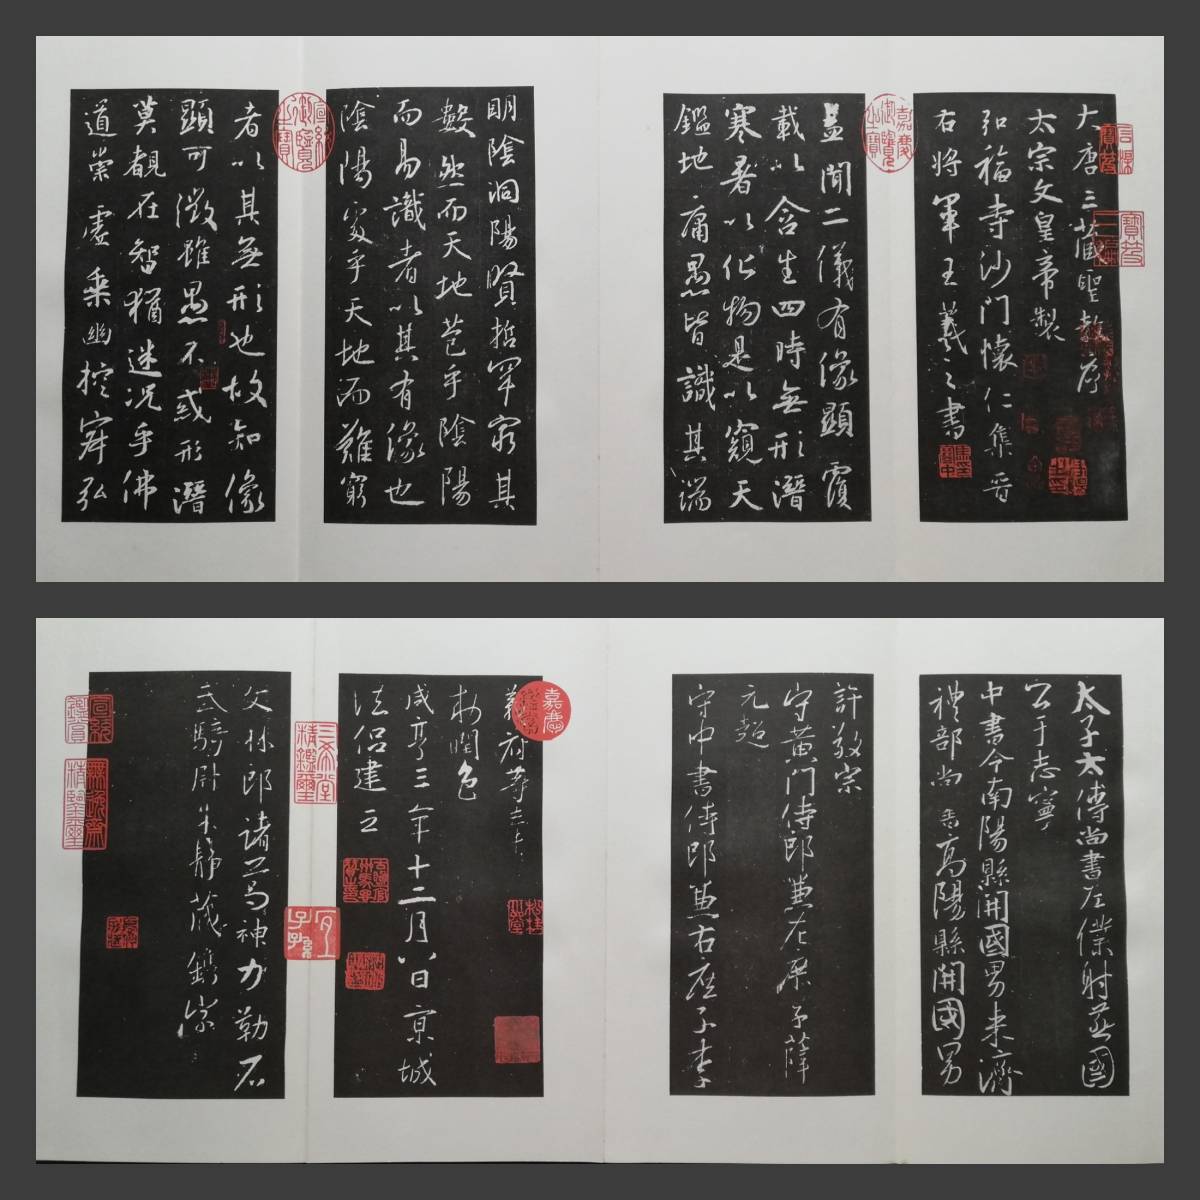 大唐三藏聖教序
太宗文皇帝製
弘福寺沙門懷仁集晉
右將軍王羲之書
蓋聞二儀有像顯覆
載以含生四時無形潛
寒暑以化物是以窺天
鑑地庸愚皆識其端
明陰洞陽賢哲罕窮其
數然而天地苞乎陰陽
而易識者以其有像也
陰陽處乎天地而難窮
者以其無形也故知像
顯可徵雖愚不惑形潛
莫覩在智猶迷況乎佛
道崇虛乘幽控寂弘
太子太傅尚書左僕射燕國
公于志寧
中書令南陽縣開國男來濟
禮部尚書高陽縣開國男
許敬宗
守黃門侍郎兼左庶子薛
元超
守中書侍郎兼右庶子李
義府等奉
勅潤色
咸亨三年十二月八日京城
法侶建之
文林郎諸葛神力勒石
武騎尉朱靜藏鐫字
嘉慶御覽之寶
宣統御覽之寶
嘉慶
三希堂精鑑璽
宜子孫
宣統鑑賞
無逸齋精鑒璽